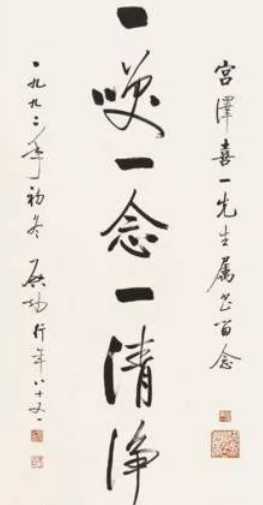 宫澤喜一先生属书留念
一咲一念一清淨
一九九二年初冬 啟功行年八十又一